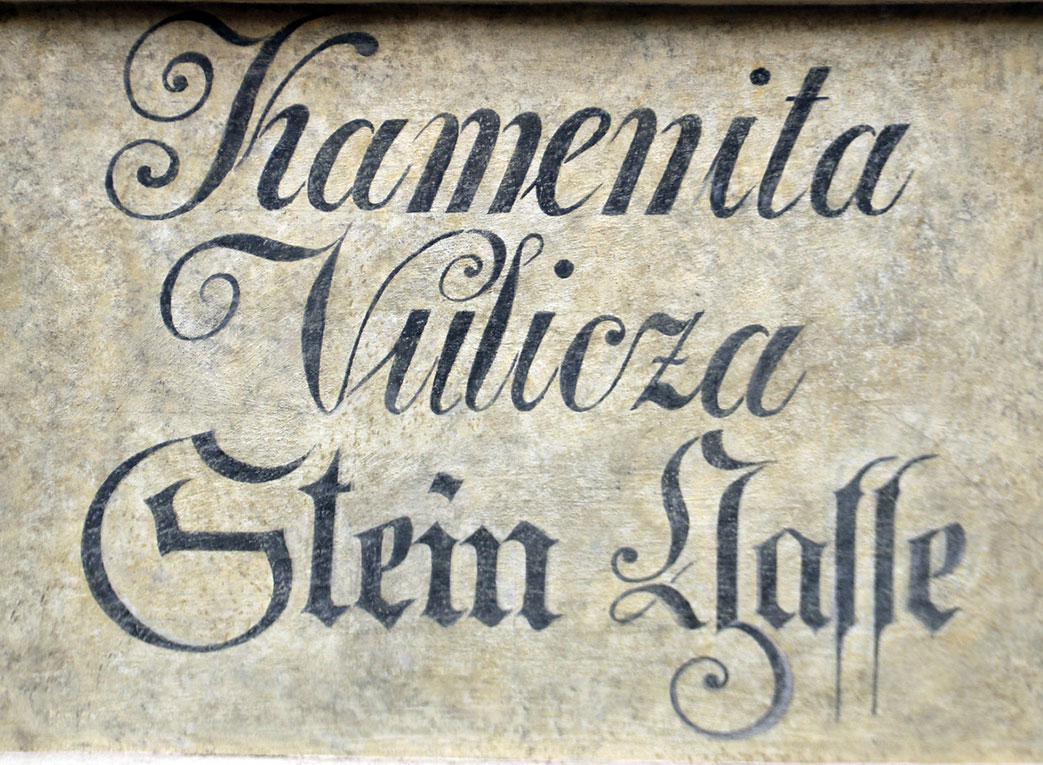 Kamenita
Vulicza
Stein Gasse